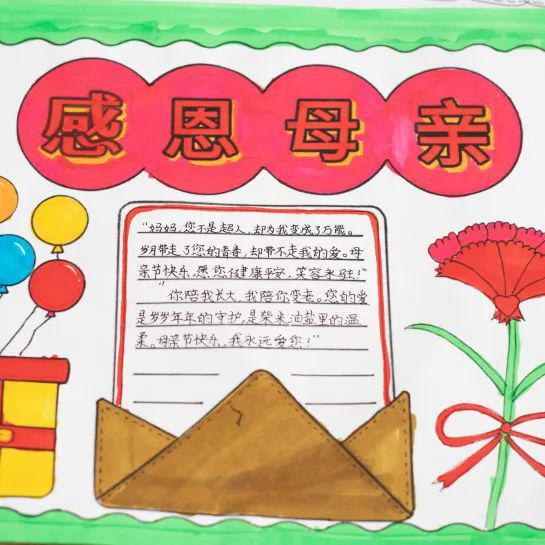 感恩母亲
“妈妈,您不是超人,却为我变成了万能。
岁月带走了您的青春,却带不走我的爱。母
亲节快乐,愿您健康平安,笑容永驻!”
“你陪我长大,我陪你变老。您的爱
是岁岁年年的守护,是柴米油盐里的温
柔。母亲节快乐,我永远爱您!”